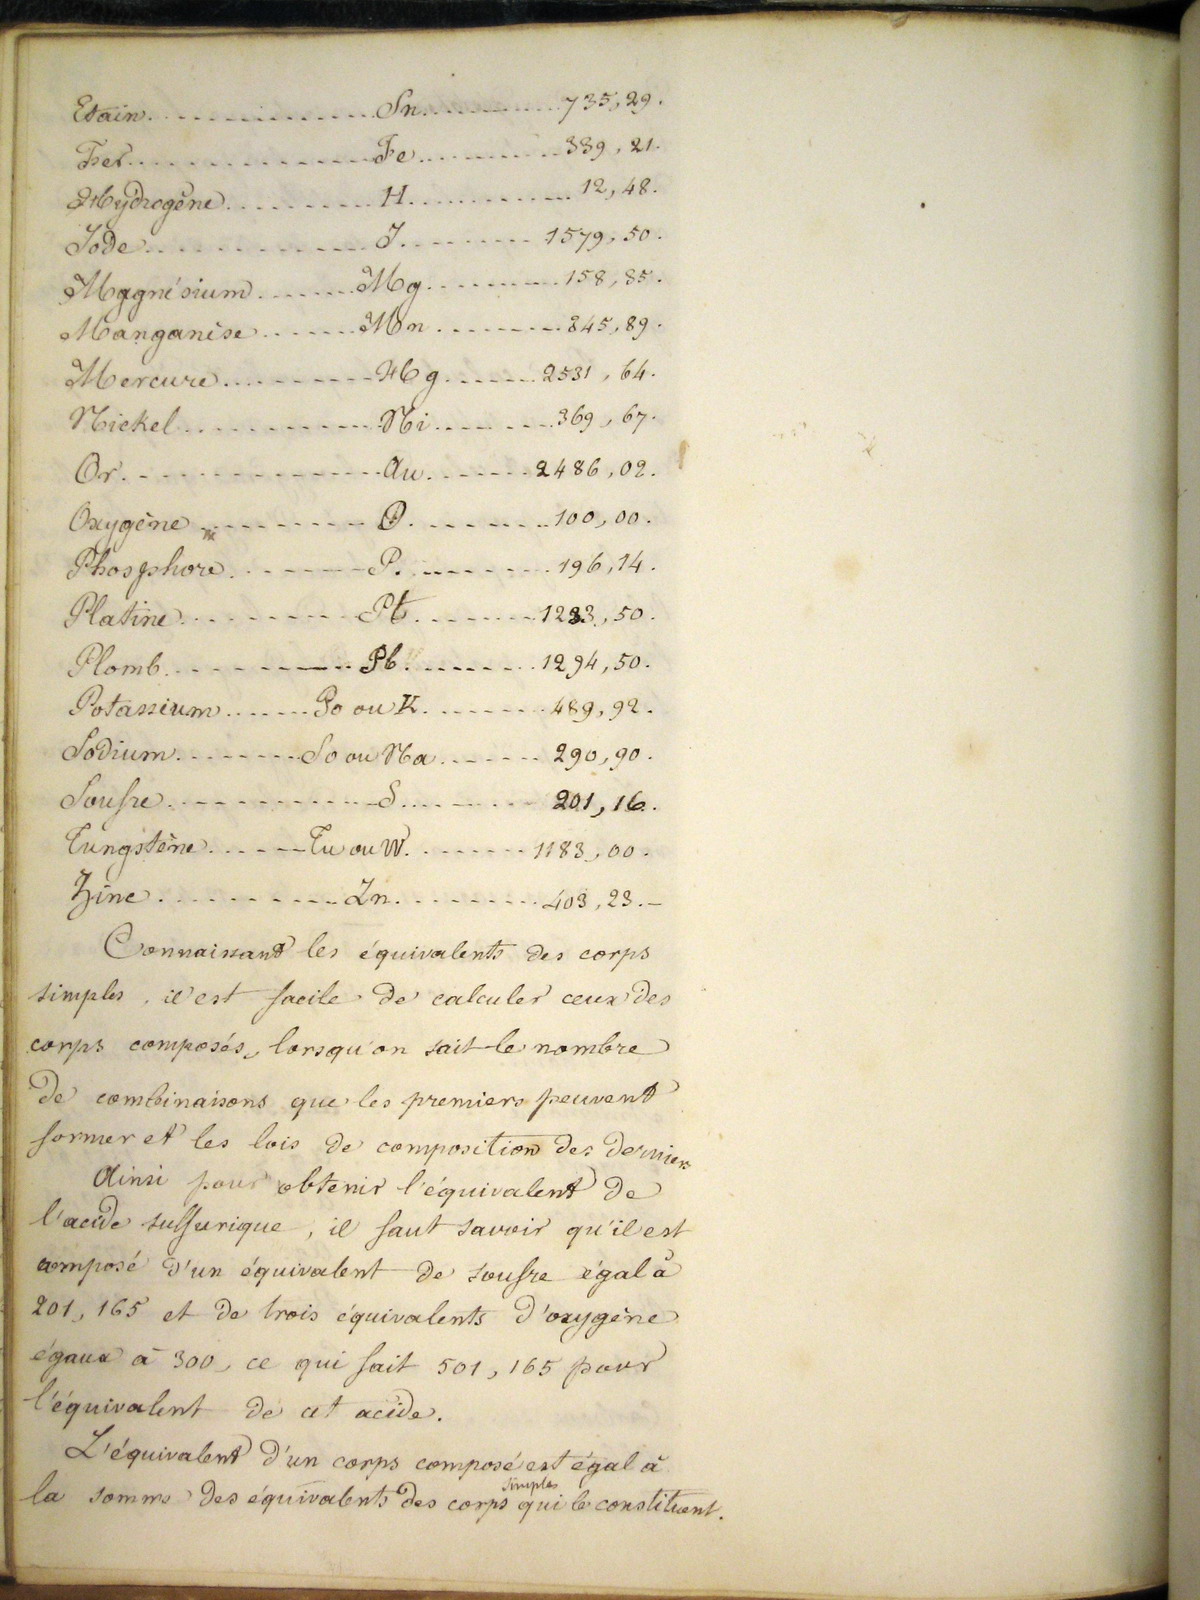 Etain. - - - - - - - - - - - - - - Sn. - - - - - - - - - 735,29.
Fer. - - - - - - - - - - - - - - - Fe. - - - - - - - - - 339,21.
Hydrogène. - - - - - - - - - H. - - - - - - - - - - 12,48.
Jode. - - - - - - - - - - - - - - J. - - - - - - - - - 1579,50.
Magnésium. - - - - - - Mg. - - - - - - - - - 158,35.
Manganèse. - - - - - - Mn. - - - - - - - - 345,89.
Mercure. - - - - - - - - - - Hg. - - - - - - 2531,64.
Nickel. - - - - - - - - - - - - Ni. - - - - - - - - 369,67.
Or. - - - - - - - - - - - - - - - - Au. - - - - - - - 2486,02.
Oxygène - - - - - - - - - - - O. - - - - - - - - - 100,00.
Phosphore. - - - - - - - - P. - - - - - - - - - 196,14.
Platine. - - - - - - - - - - - Pt. - - - - - - - - 1233,50.
Plomb. - - - - - - - - - - - - Pb. - - - - - - - - 1294,50.
Potassium. - - - - - Po ou K. - - - - - - - - 489,92.
Sodium. - - - - - - - - So ou Na. - - - - - - 290,90.
Soufre. - - - - - - - - - - - - - S. - - - - - - - - 201,16.
Tungstène. - - - - - Tu ou W. - - - - - - - - 1183,00.
Zinc. - - - - - - - - - - - - Zn. - - - - - - - - - 403,23.-
Connaissant les équivalents des corps
simples, il est facile de calculer ceux des
corps composés, lorsqu'on sait le nombre
de combinaisons que les premiers peuvent
former et les lois de composition des derniers
Ainsi pour obtenir l'équivalent de
l'acide sulfurique, il faut savoir qu'il est
composé d'un équivalent de soufre égal à
201,165 et de trois équivalents d'oxygène
égaux à 300, ce qui fait 501,165 pour
l'équivalent de cet acide.
L'équivalent d'un corps composé est égal à
la somme des équivalents des corps simples qui le constituent.